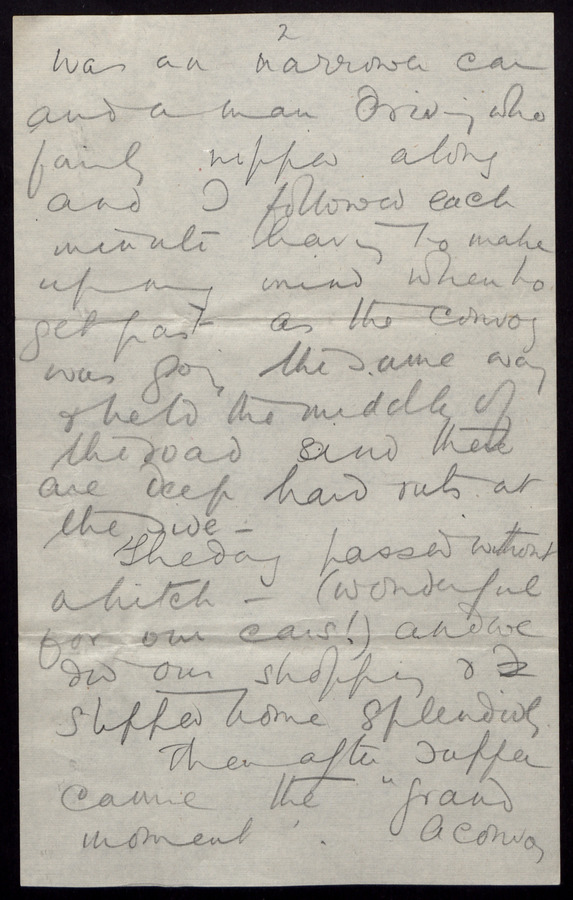 2
was an narrower car
and a man driving who
fairly nipped along
and I followed each
minute having to make
up my mind when to
get past as the convoy
was going the same way
& held the middle of
the road and there
are deep hard ruts at
the side –
The day passed without
a hitch – (wonderful
for our cars!) and we
did our shopping &
slipped home splendidly
Then after supper
came the "grand
moment". A convoy